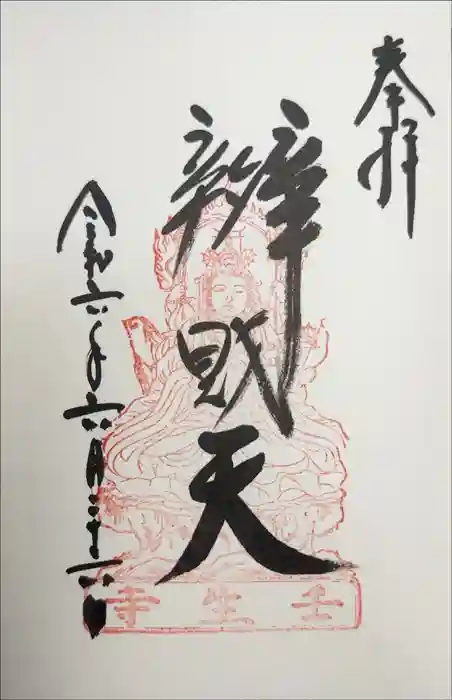 奉拝
辨財天
壬生寺
令和六年六月二十六日